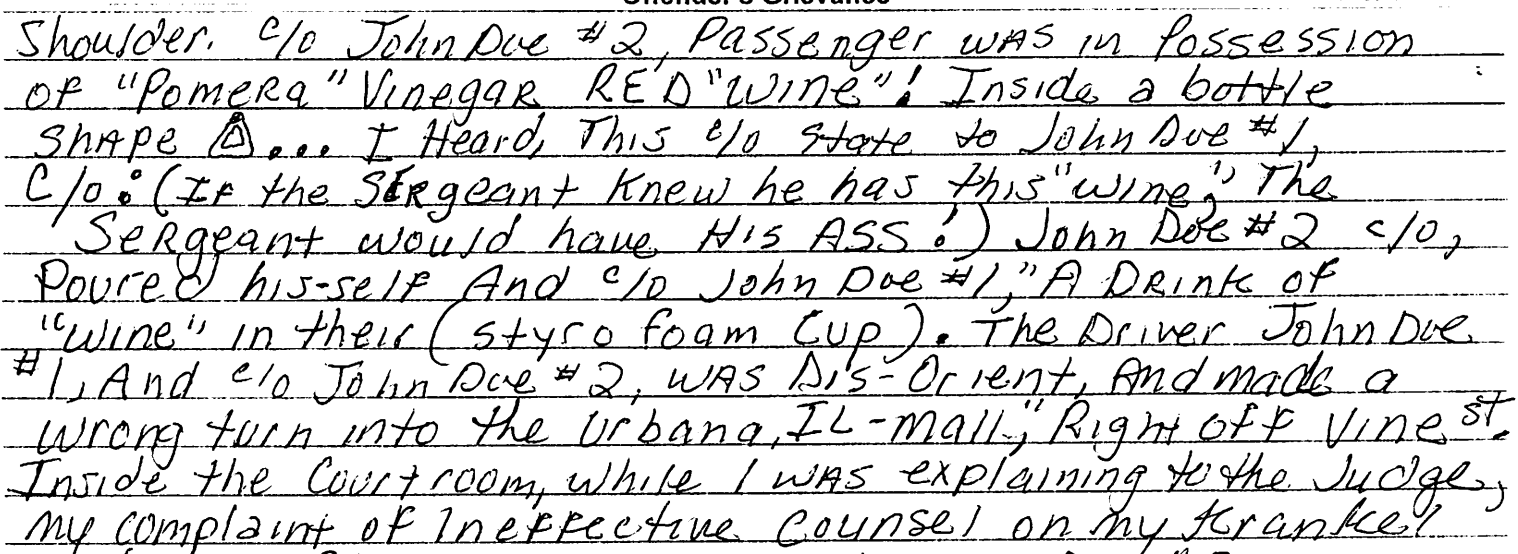 Offender's Grievance
Shoulder. c/o John Doe #2, Passenger WAS in Possession
OF "Pomera" Vinegar RED "Wine"! Inside a bottle
SHAPE ... I Heard, This c/o State to John Doe #1,
C/o: (IF the SERgeant Knew he has this "wine," The
SeRgeant would have His ASS!) John Doe #2 c/o,
Poured his-self And c/o John Doe #1," A DRink of
"Wine" in their (styro foam Cup). The Driver John Doe
#1, And c/o John Doe #2, WAS Dis-Orient, And made a
Wrong turn into the Urbana, IL-mall," Right off Vine St.
Inside the Courtroom, while I WAS explaining to the Judge,
my complaint of IneFFective Counsel on my Krankel